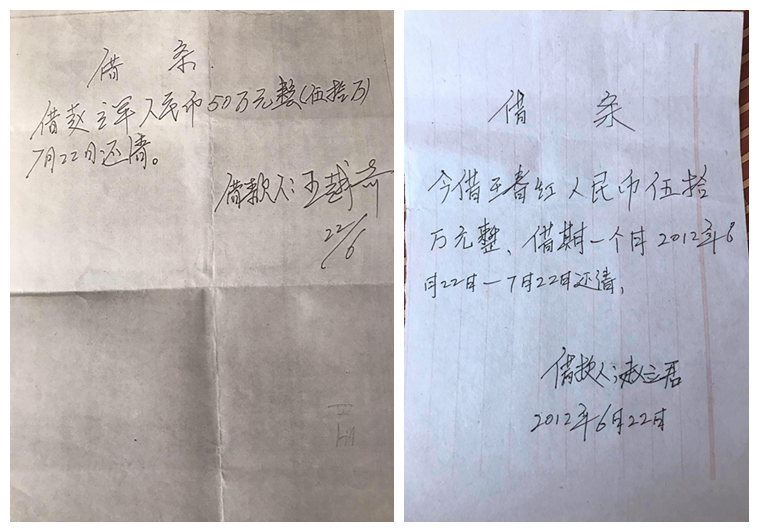 借条
借赵立军人民币50万元整(伍拾万)
7月22日还清。
借款人:王越
22/6
借条
今借王春红人民币伍拾
万元整、借期一个月2012年6
月22日一7月22日还清,
借款人:赵立君
2012年6月22日